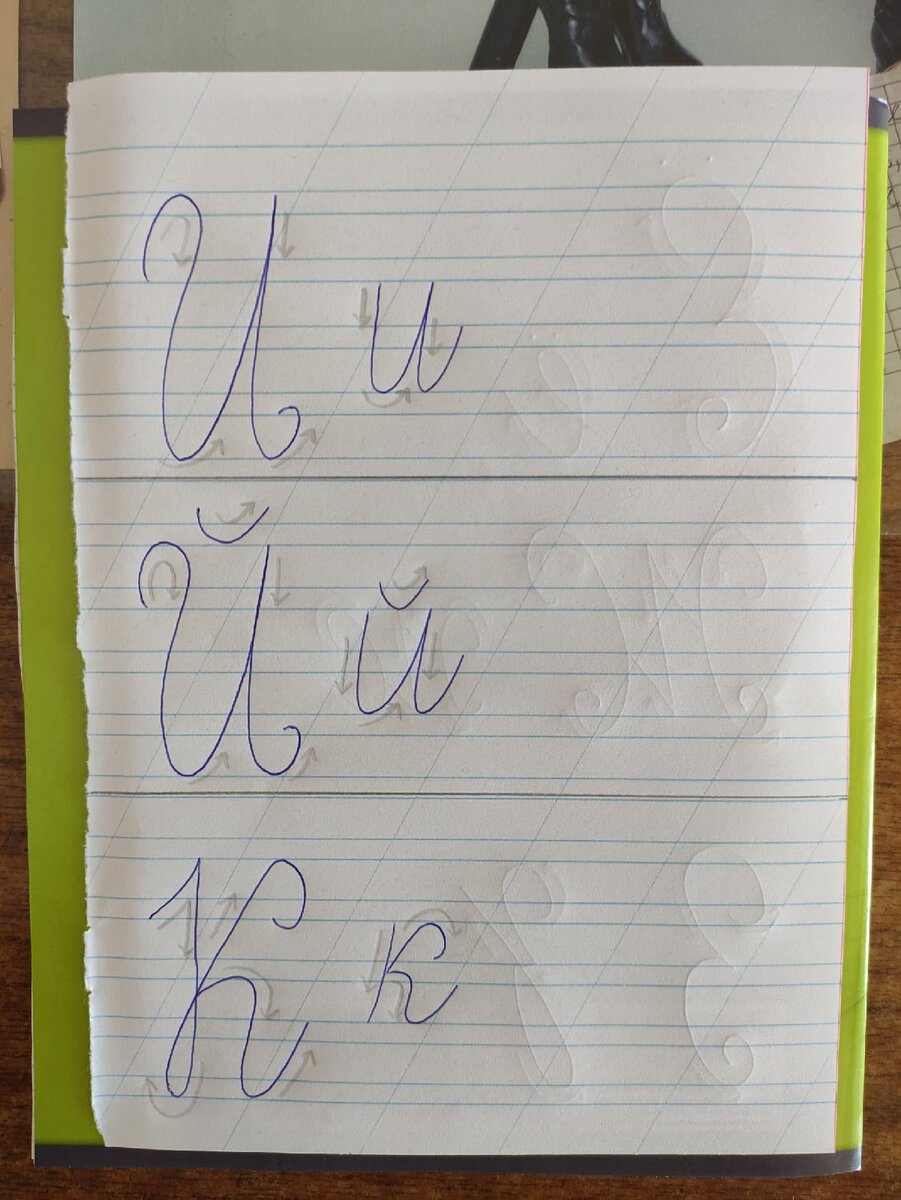 И и
Й й
К к